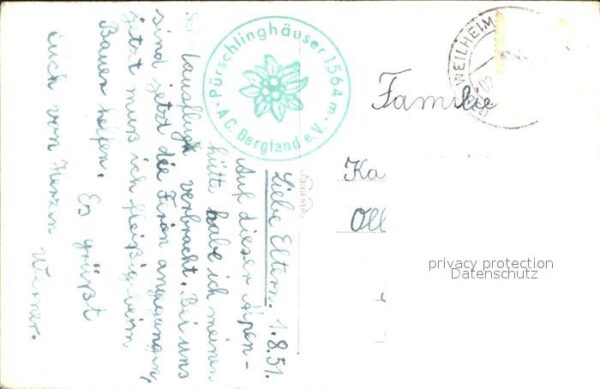 Pürschlinghäuser 1564 m
A.C. Bergland e.V.
WEILHEIM
Liebe Eltern. 1.8.51.
Auf dieser Alpen-
hütte habe ich meinen
verbracht. Bei uns
sind jetzt die Firien angegangen,
jetzt muß ich fleißig beim
Bauer helfen. Es grüßt
euch von Herzen Werner.
Familie
Ka
Oll
privacy protection
Datenschutz